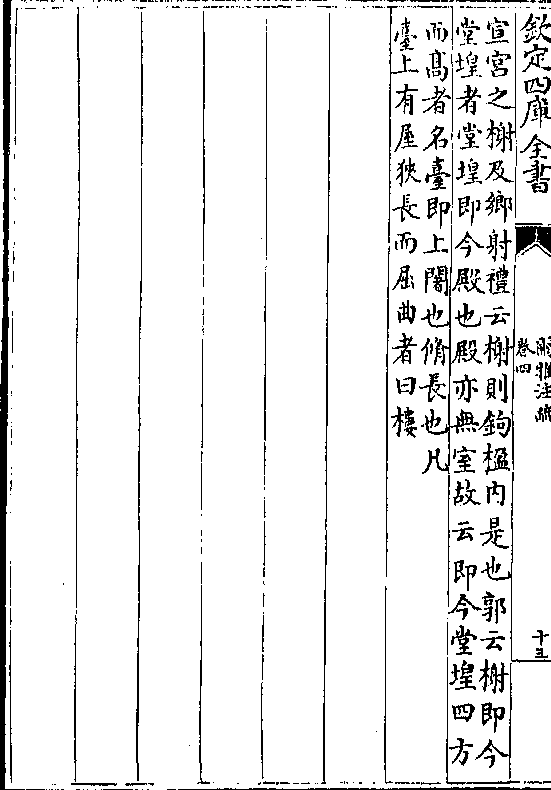 欽定四庫全書
爾雅注疏
卷四
十三
宣宮之榭及鄉射禮云榭則鉤楹内是也郭云榭即今
堂堭者堂堭即今殿也殿亦無室故云即今堂堭四方
而髙者名臺即上闍也脩長也凡
臺上有屋狹長而屈曲者曰樓